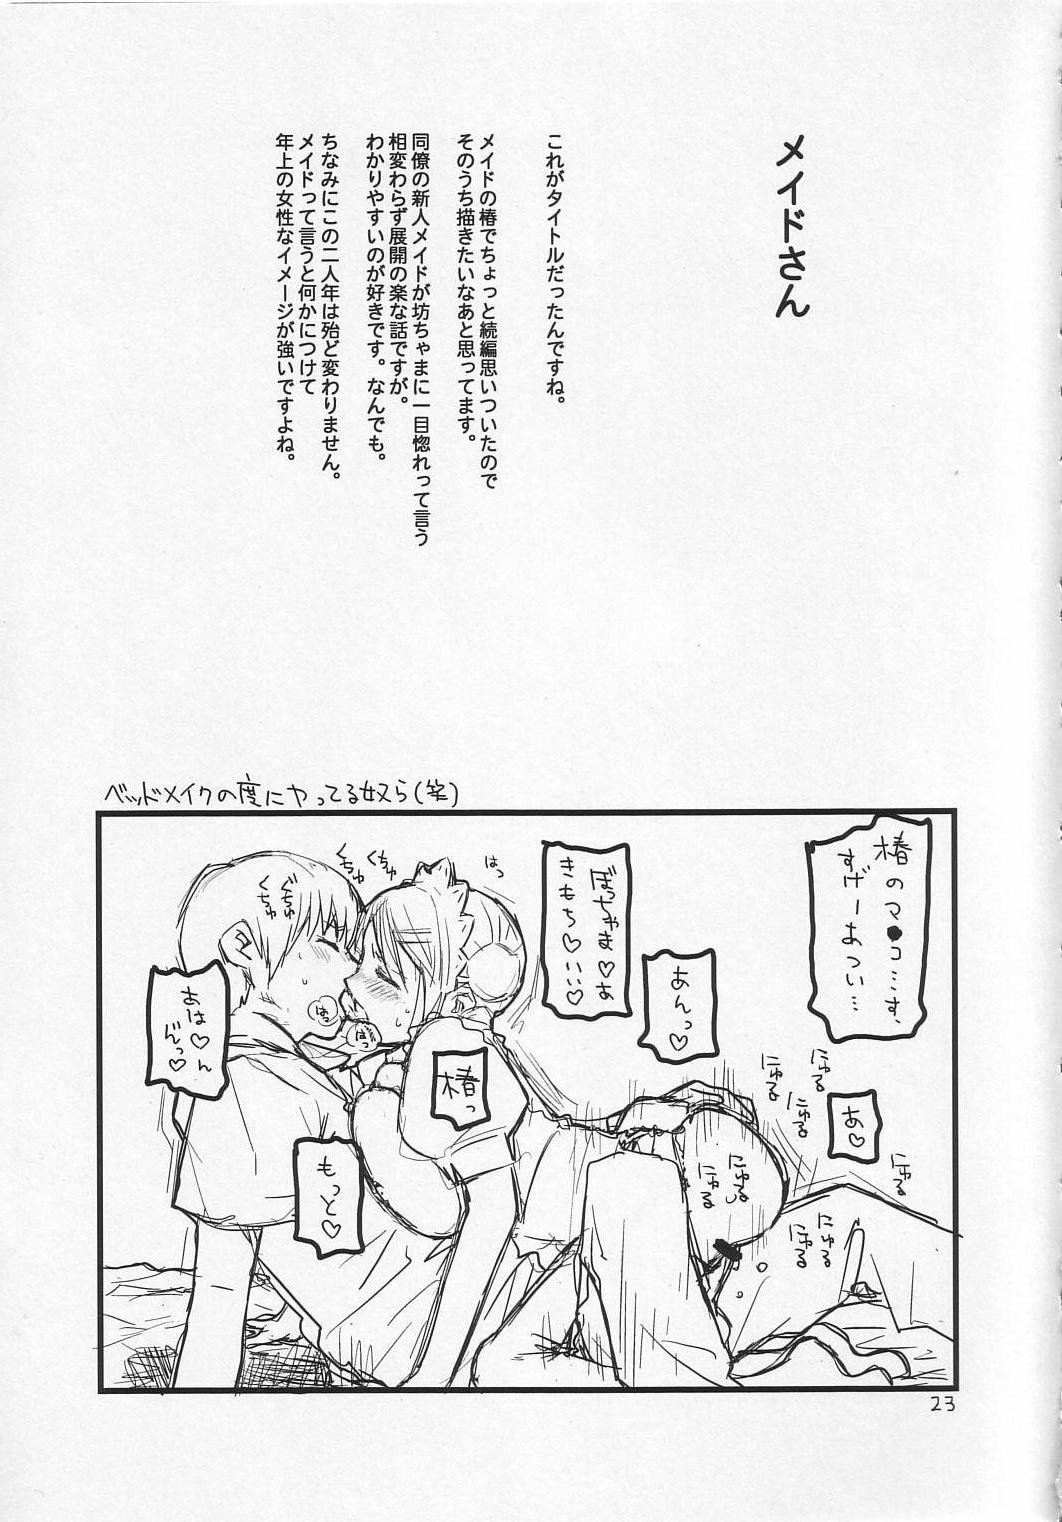 メイドさん
これがタイトルだったんですね。
メイドの椿でちょっと続編思いついたので
そのうち描きたいなあと思ってます。
同僚の新人メイドが坊ちゃまに一目惚れって言う
相変わらず展開の楽な話ですが。
わかりやすいのが好きです。なんでも。
ちなみにこの二人年は殆ど変わりません。
メイドって言うと何かにつけて
年上の女性なイメージが強いですよね。
ベッドメイクの度にヤってる奴ら(笑)
椿のマ●コ…す、
すげーあつい…
ぼっちゃま♡あ
きもち♡いい♡
あんっ♡
あ♡
にゅる
にゅる
にゅる
にゅる
にゅる
にゅる
にゅる
にゅる
はっ
くちゅ
くちゅ
ぐちゅ
くちゅ
はっ
はっ
椿っ
もっと♡
あは♡ん
23